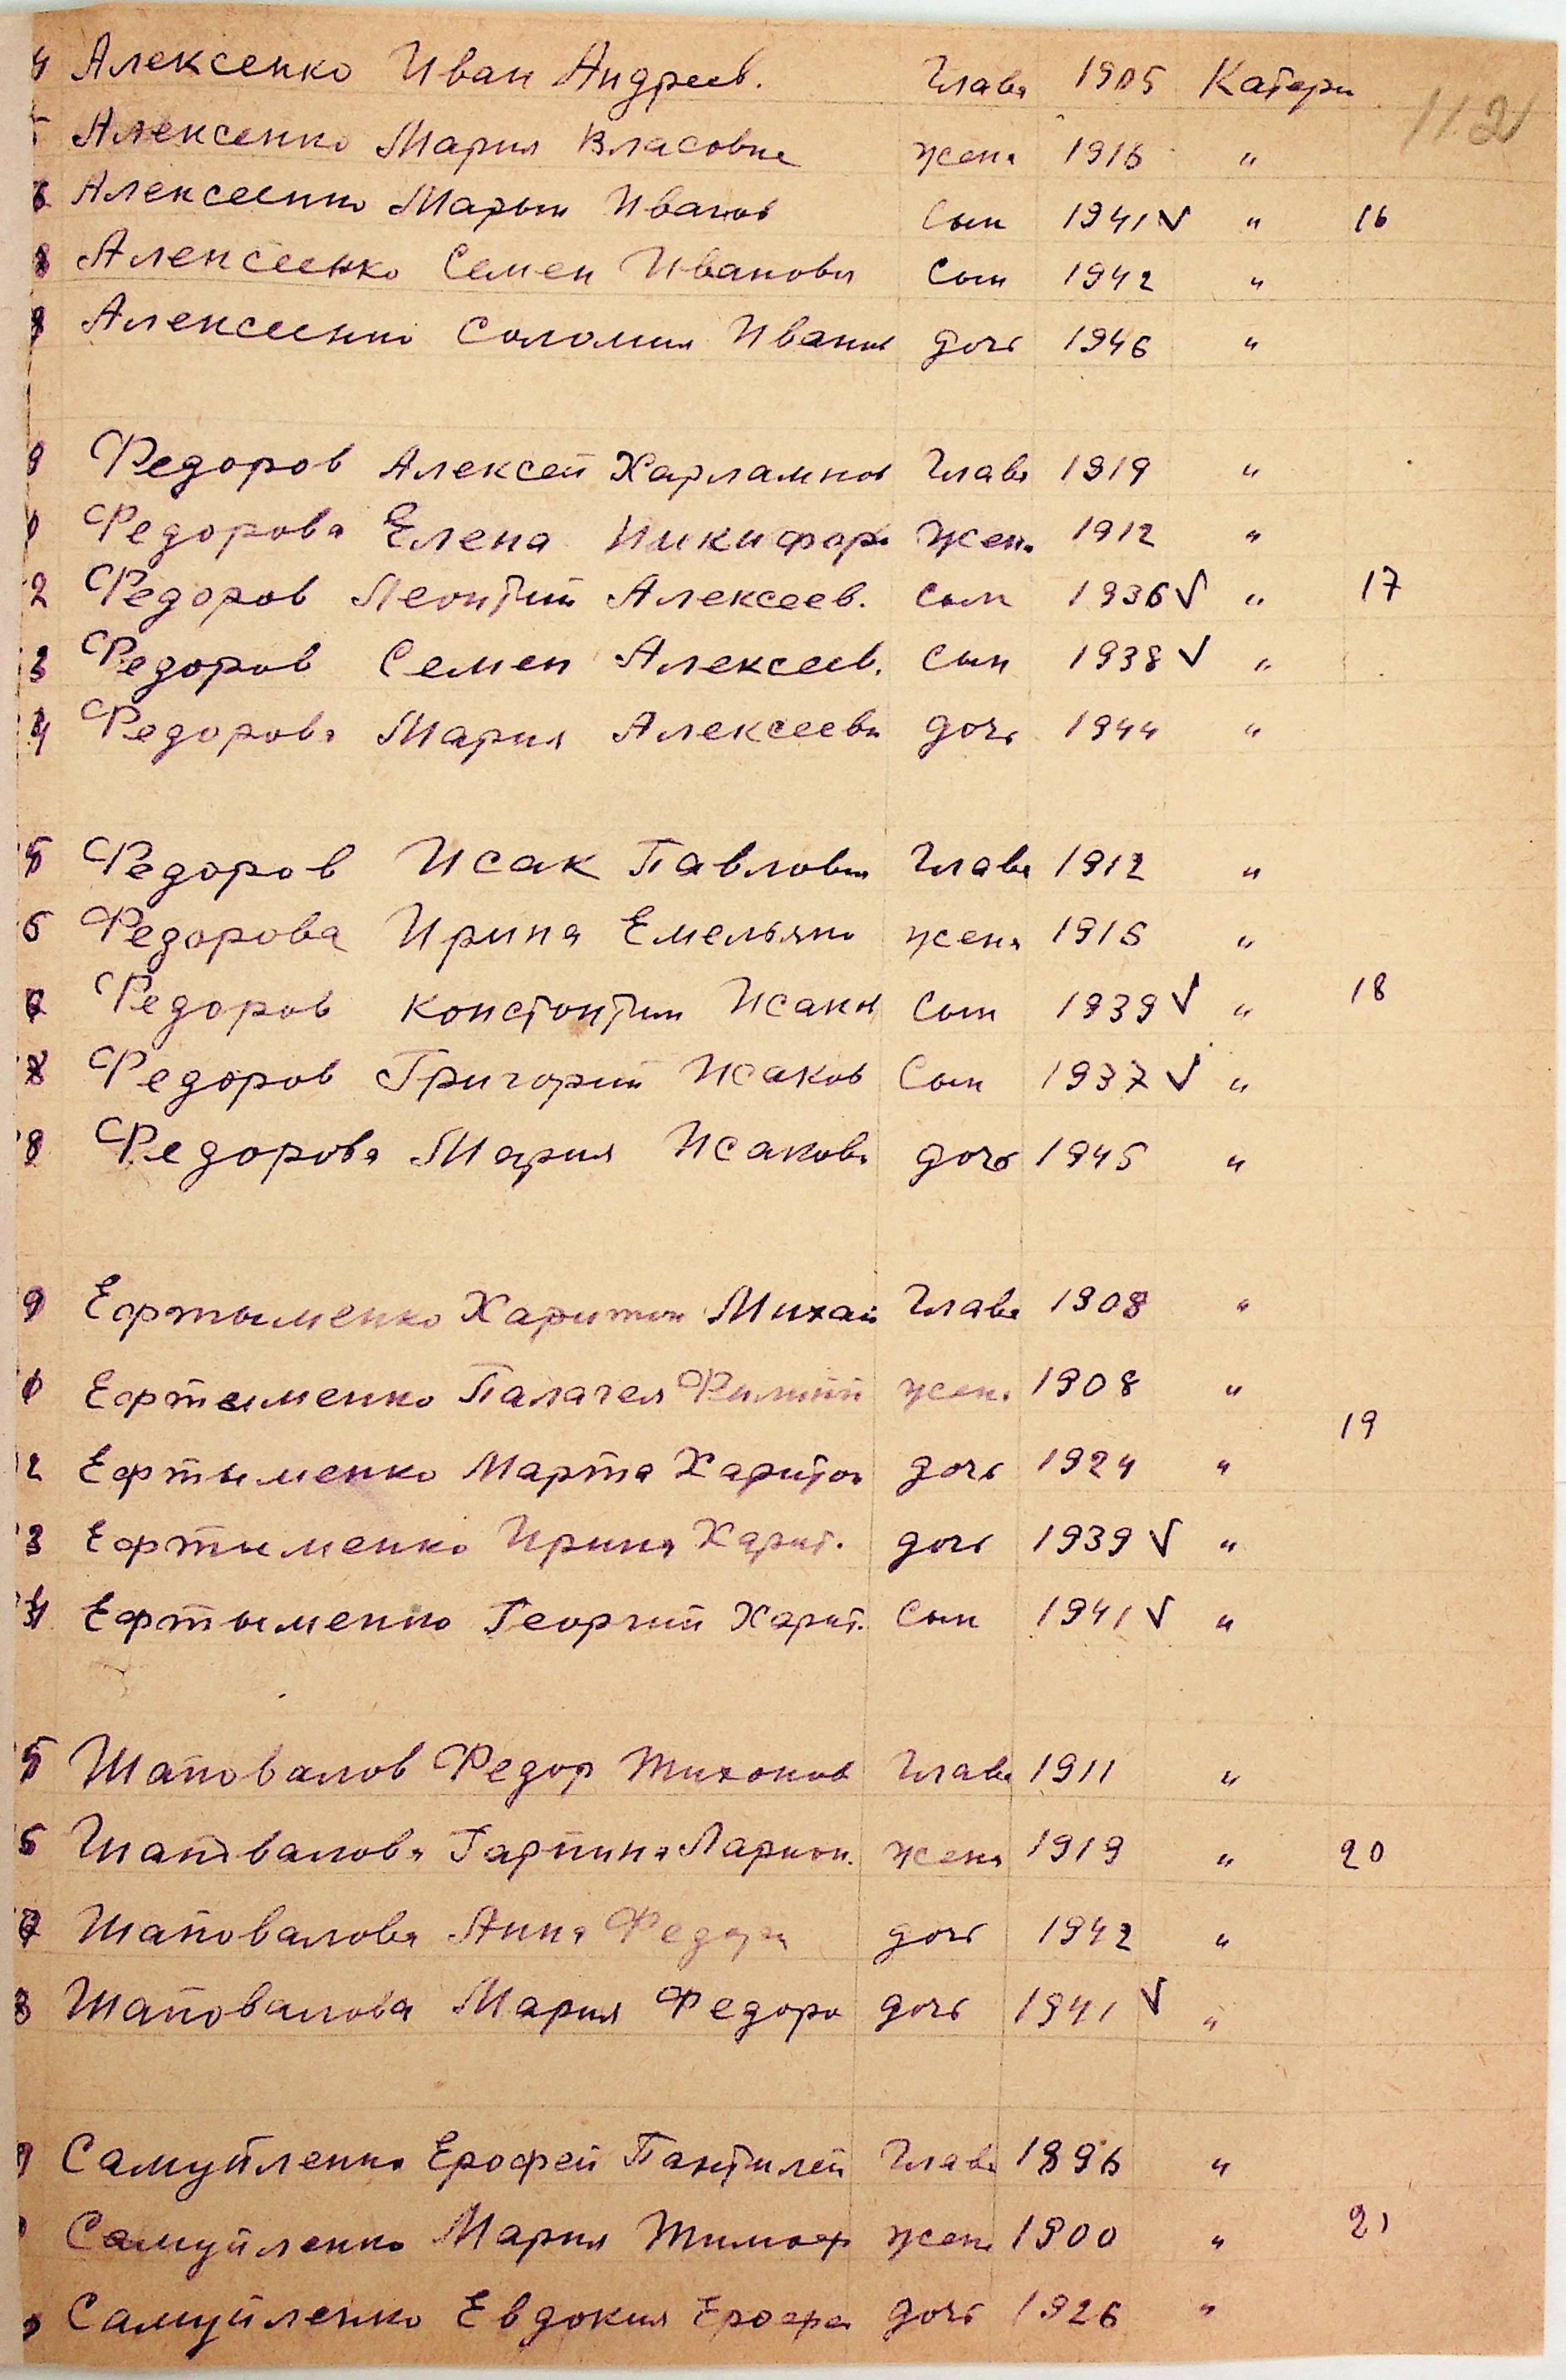 4 Алексенко Иван Андреев. Глава 1905 Катери
112
Алексенко Мария Власовна жена 1916 "
Алексеенко Марьян Иванов сын 1941 ✓ " 16
8 Алексеенко Семен Иванови сын 1942 "
Алексеенко Соломия Иванов дочь 1946 "
9 Федоров Алексей Харлампов Глава 1919 "
0 Федорова Елена Никифор. жена 1912 "
2 Федоров Леонтий Алексеев. сын 1936 ✓ " 17
3 Федоров Семен Алексеев. сын 1938 ✓ "
4 Федорова Мария Алексеевн дочь 1944 "
5 Федоров Исак Павлович Глава 1912 "
6 Федорова Ирина Емельяно жена 1915 "
Федоров Константин Исаков сын 1939 ✓ " 18
8 Федоров Григорий Исаков Сын 1937 ✓ "
8 Федорова Мария Исакова дочь 1945 "
9 Ефтыменко Харитон Михай Глава 1908 "
0 Ефтыменко Палагея Филип жена 1908 "
19
2 Ефтыменко Марта Харитон дочь 1924 "
3 Ефтыменко Ирина Харит. дочь 1939 ✓ "
4 Ефтыменко Георгий Харит. Сын 1941 ✓ "
5 Шаповалов Федор Тихонов Глава 1911 "
6 Шаповалова Гарпина Ларион. жена 1919 " 20
7 Шаповалова Анна Федори дочь 1942 "
8 Шаповалова Мария Федоро дочь 1941 ✓ "
9 Самуйленко Ерофей Пантилей Глава 1896 "
Самуйленко Мария Тимоф жена 1900 " 21
Самуйленко Евдокия Ерофе дочь 1926 "